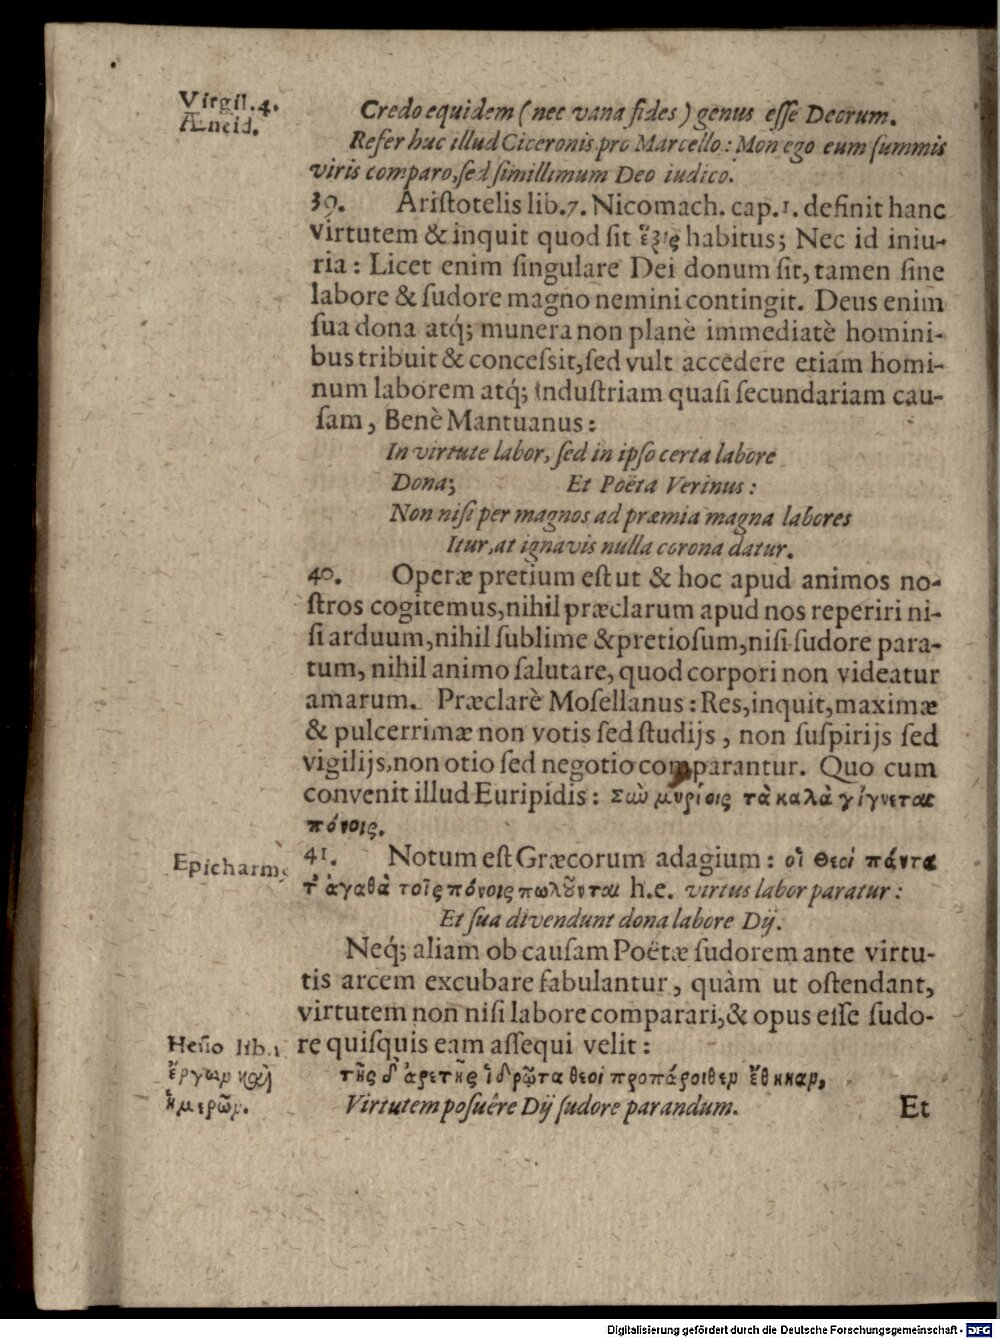 Virgil. 4.
Æneid.
Credo equidem (nec vana fides) genus eſſe Deorum.
Refer huc illud Ciceronis pro Marcello: Non ego eum ſummis
viris comparo, ſed ſimillimum Deo iudico.
39. Ariſtotelis lib. 7. Nicomach. cap. 1. definit hanc
virtutem & inquit quod ſit ἕξις habitus; Nec id iniu-
ria: Licet enim ſingulare Dei donum ſit, tamen ſine
labore & ſudore magno nemini contingit. Deus enim
ſua dona atq́; munera non planè immediatè homini-
bus tribuit & conceſsit, ſed vult accedere etiam homi-
num laborem atq́; induſtriam quaſi ſecundariam cau-
ſam, Benè Mantuanus:
In virtute labor, ſed in ipſo certa labore
Dona; Et Poëta Verinus:
Non niſi per magnos ad præmia magna labores
Itur, at ignavis nulla corona datur.
40. Operæ pretium eſt ut & hoc apud animos no-
ſtros cogitemus, nihil præclarum apud nos reperiri ni-
ſi arduum, nihil ſublime & pretioſum, niſi ſudore para-
tum, nihil animo ſalutare, quod corpori non videatur
amarum. Præclarè Moſellanus: Res, inquit, maximæ
& pulcerrimæ non votis ſed ſtudijs, non ſuſpirijs ſed
vigilijs, non otio ſed negotio comparantur. Quo cum
convenit illud Euripidis: Σὺν μυρίοις τὰ καλὰ γίγνεται
πόνοις.
Epicharm.
41. Notum eſt Græcorum adagium: οἱ θεοί πάντα
τ' ἀγαθὰ τοῖς πόνοις πωλοῦνται h.e. virtus labor paratur:
Et ſua divendunt dona labore Dij.
Neq́; aliam ob cauſam Poëtæ ſudorem ante virtu-
tis arcem excubare fabulantur, quàm ut oſtendant,
virtutem non niſi labore comparari, & opus eſſe ſudo-
re quiſquis eam aſſequi velit:
Heſio lib. 1
ἔργων καὶ
ἡμερῶν.
τῆς δ' ἀρετῆς ἱδρῶτα θεοί προπάροιθεν ἔθηκαν,
Virtutem poſuêre Dij ſudore parandum.
Et
Digitalisierung gefördert durch die Deutsche Forschungsgemeinschaft - DFG